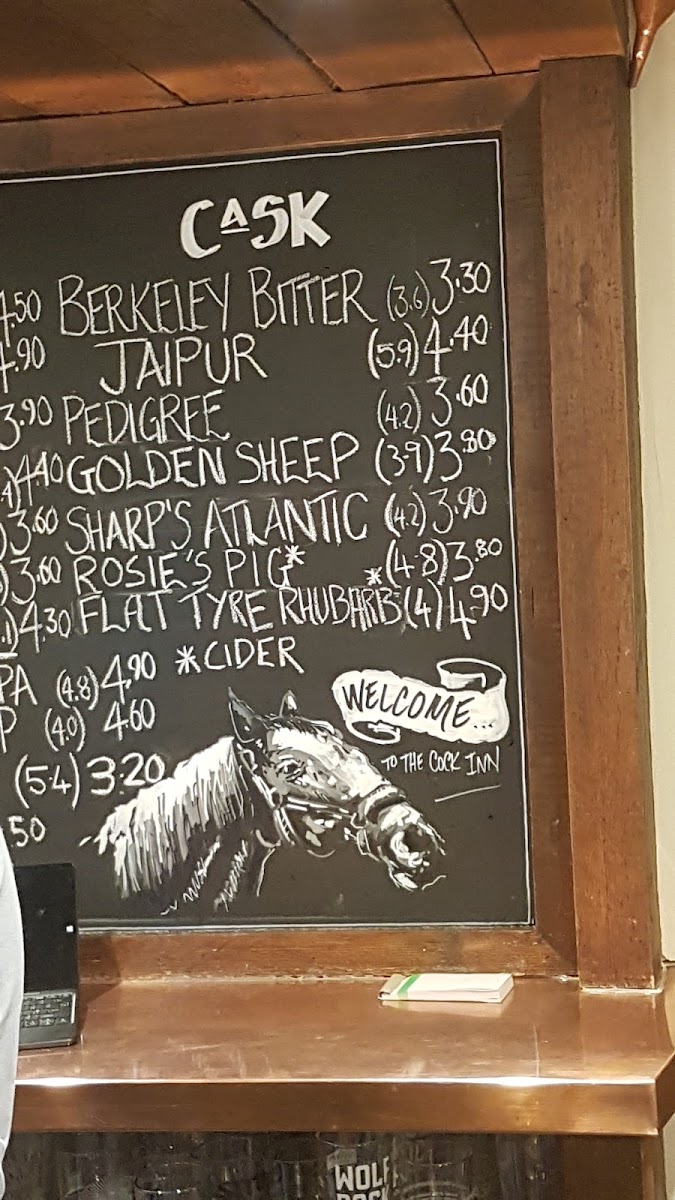 CASK
4.50 BERKELEY BITTER (3.6) 3.30
4.90 JAIPUR (5.9) 4.40
3.90 PEDIGREE (4.2) 3.60
4.40 GOLDEN SHEEP (3.9) 3.80
3.60 SHARP'S ATLANTIC (4.2) 3.90
3.60 ROSIE'S PIG* (4.8) 3.80
4.30 FLAT TYRE RHUBARB* (4) 4.90
PA (4.8) 4.90 *CIDER
P (4.0) 4.60
WELCOME...
TO THE COCK INN
(5.4) 3.20
50
WOLF
ROCK